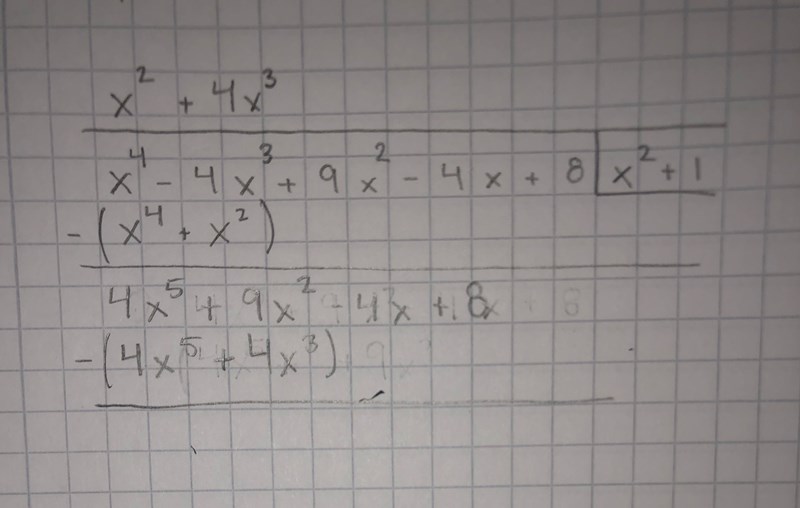 x² + 4x³
x⁴ - 4x³ + 9x² - 4x + 8 | x² + 1
-(x⁴ + x²)
4x⁵ + 9x² - 4x + 8
-(4x⁵ + 4x³)